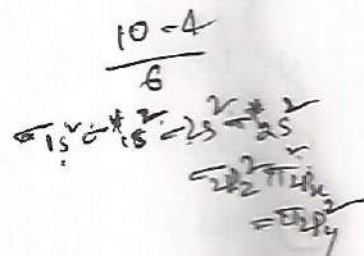 10 - 4
6
σ1s² σ*1s² σ2s² σ*2s²
σ2pz² π2px²
= π2py²